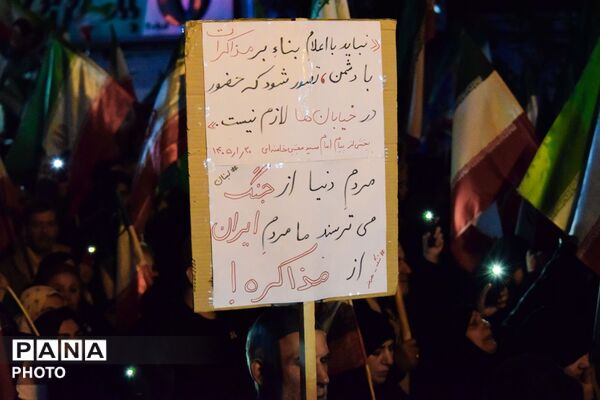 «نباید با اعلام بناءِ بر مذاکرات
با دشمن، تصور شود که حضور
در خیابان‌ها لازم نیست.»
بخشی از پیام امام سید مجتبی خامنه‌ای ۲۰/۱/۱۴۰۵
#لبنان
مردمِ دنیا از جنگ
می ترسند ما مردمِ ایران
از مذاکره!
PANA
PHOTO